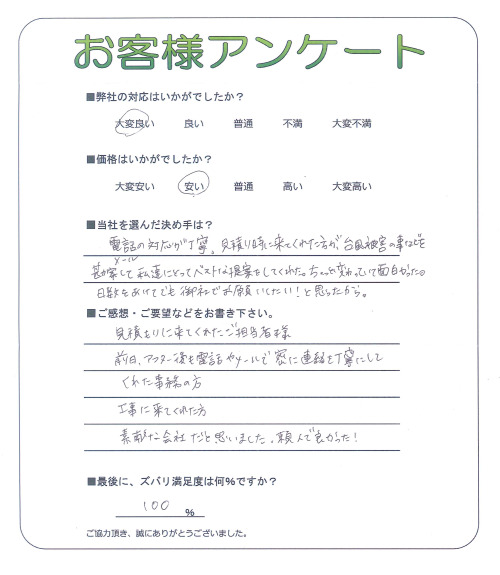 お客様アンケート
■弊社の対応はいかがでしたか？
大変良い 良い 普通 不満 大変不満
■価格はいかがでしたか？
大変安い 安い 普通 高い 大変高い
■当社を選んだ決め手は？
電話の対応が丁寧。見積り時に来てくれた方が、台風被害の事などを
メール
勘案して私達にとってベストな提案をしてくれた。ちょっと変わっていて面白かった。
日数をあけてでも御社でお願いしたい！と思ったから。
■ご感想・ご要望などをお書き下さい。
見積もりに来てくれたご担当者様
前日、アフター後も電話やメールで密に連絡を丁寧にして
くれた事務の方
工事に来てくれた方
素敵な会社だと思いました。頼んで良かった！
■最後に、ズバリ満足度は何%ですか？
100 %
ご協力頂き、誠にありがとうございました。